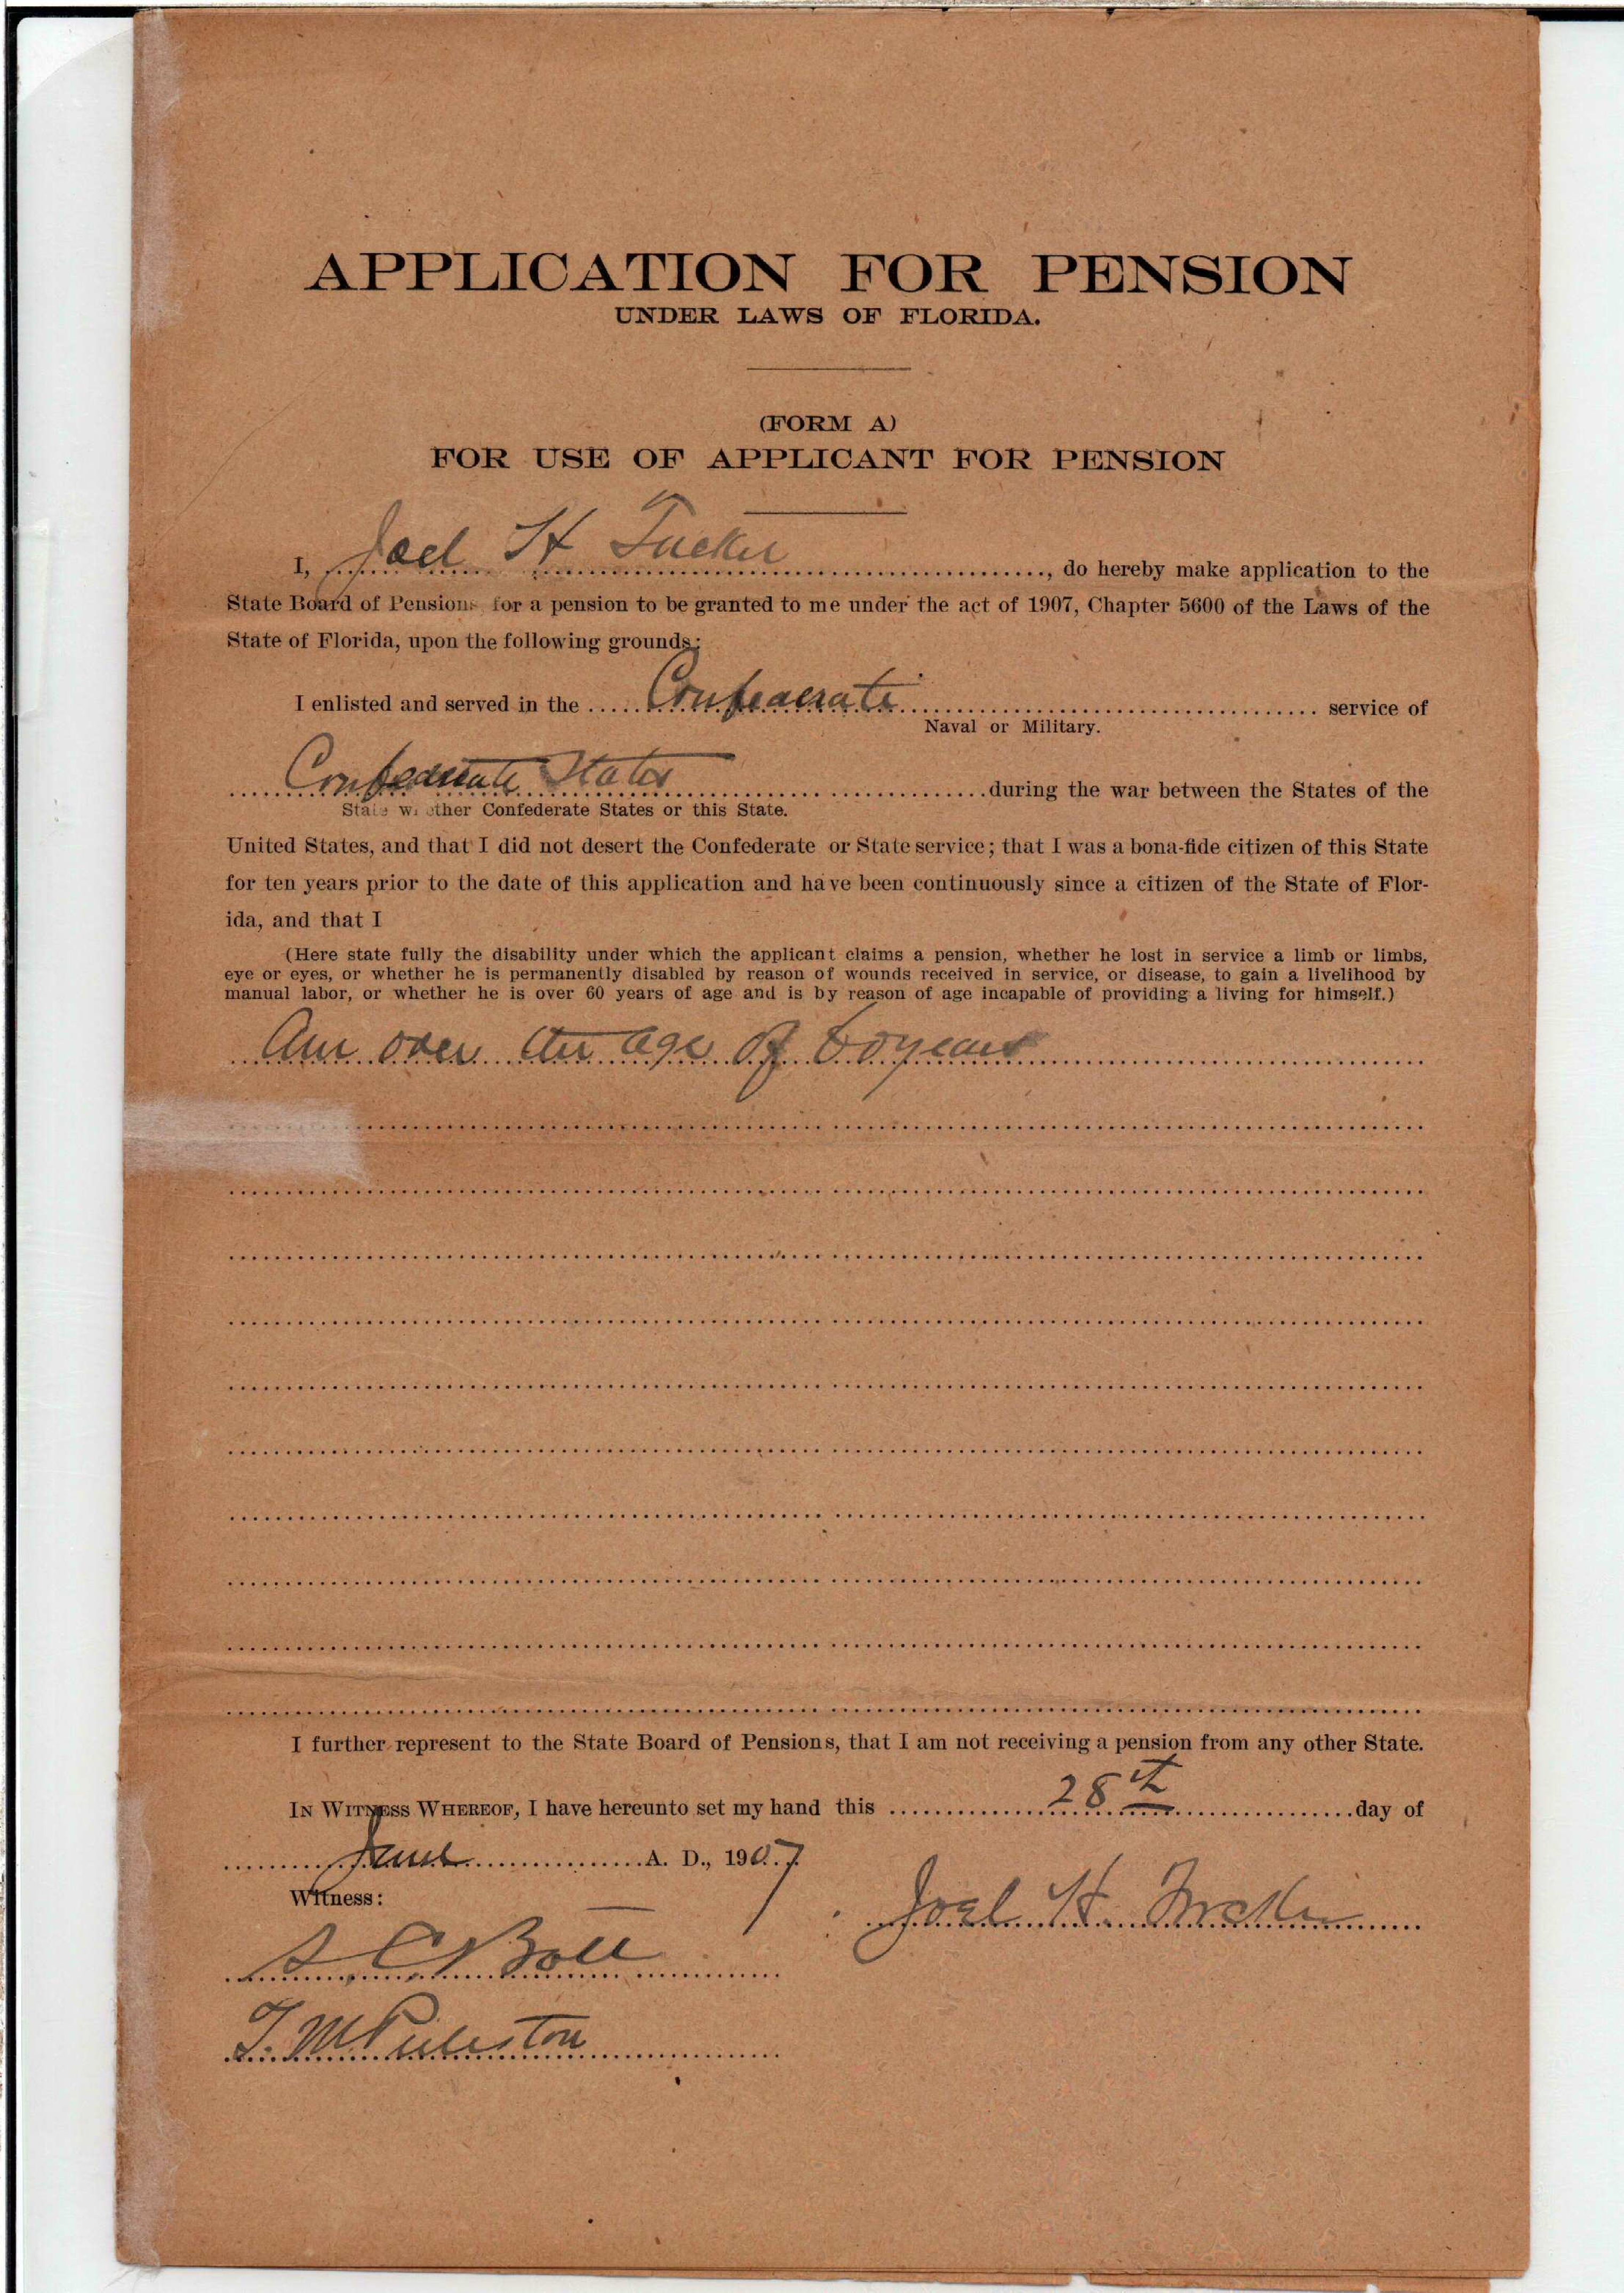 APPLICATION FOR PENSION
UNDER LAWS OF FLORIDA.
(FORM A)
FOR USE OF APPLICANT FOR PENSION
I, Joel H Tucker, do hereby make application to the
State Board of Pensions for a pension to be granted to me under the act of 1907, Chapter 5600 of the Laws of the
State of Florida, upon the following grounds:
I enlisted and served in the Confederate service of
Naval or Military.
Confederate States during the war between the States of the
State whether Confederate States or this State.
United States, and that I did not desert the Confederate or State service; that I was a bona-fide citizen of this State
for ten years prior to the date of this application and have been continuously since a citizen of the State of Flor-
ida, and that I
(Here state fully the disability under which the applicant claims a pension, whether he lost in service a limb or limbs,
eye or eyes, or whether he is permanently disabled by reason of wounds received in service, or disease, to gain a livelihood by
manual labor, or whether he is over 60 years of age and is by reason of age incapable of providing a living for himself.)
Am over the age of 60 years
I further represent to the State Board of Pensions, that I am not receiving a pension from any other State.
IN WITNESS WHEREOF, I have hereunto set my hand this 28th day of
June A. D., 1907.
Witness:
Joel H. Tucker
T. M. Puleston